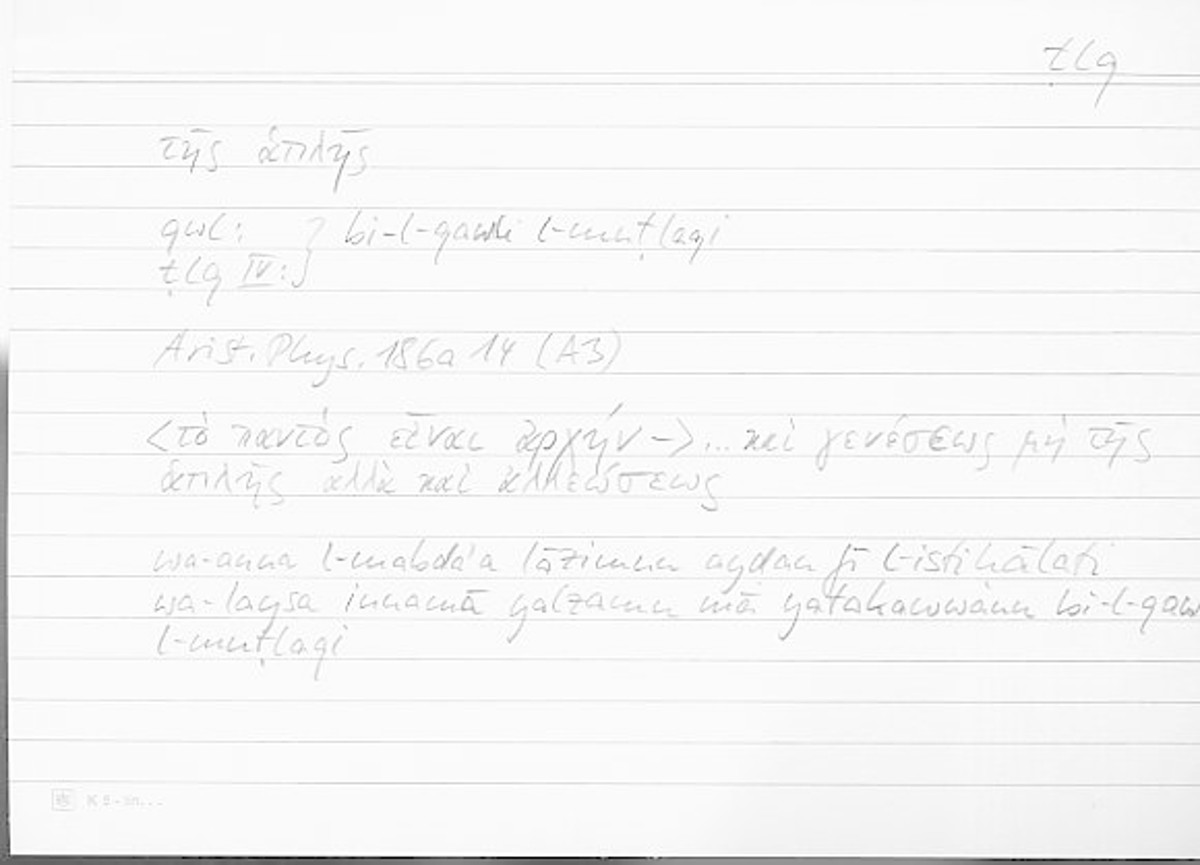 ṭlq
τῆς ἁπλῆς
qwl: } bi-l-qawli l-muṭlaqi
ṭlq IV:
Arist. Phys. 186a 14 (A3)
<τὸ παντὸς εἶναι ἀρχήν –> ... καὶ γενέσεως μὴ τῆς
ἁπλῆς ἀλλὰ καὶ ἀλλοιώσεως
wa-anna l-mabda'a lāzimun ayḍan fī l-istiḥālati
wa-laysa innamā yalzamu mā yatakawwanu bi-l-qaw
l-muṭlaqi